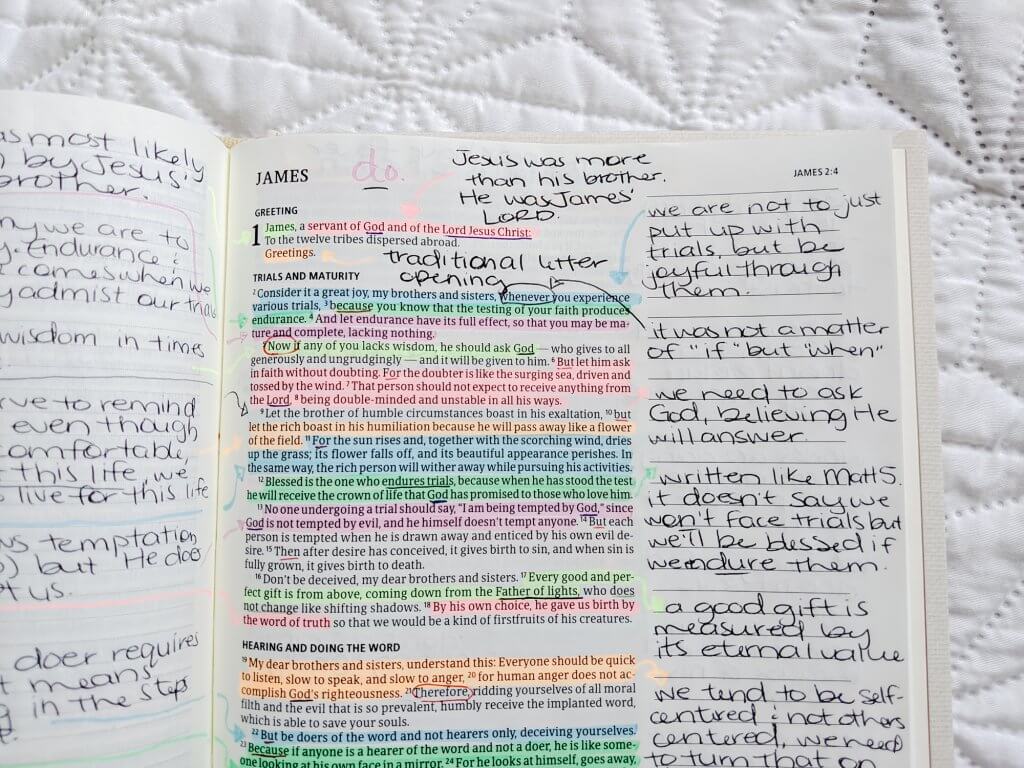 as most likely
by Jesus'
brother.
ny we are to
y. Endurance &
comes when we
y admist our trials
wisdom in times
rve to remind
even though
comfortable,
this life, we
live for this life
us temptation
but He does
t us.
doer requires
t means
in the steps
JAMES
do.
Jesus was more
than his brother.
He was James'
LORD.
JAMES 2:4
GREETING
1 James, a servant of God and of the Lord Jesus Christ:
To the twelve tribes dispersed abroad.
Greetings.
traditional letter
opening
TRIALS AND MATURITY
2 Consider it a great joy, my brothers and sisters, whenever you experience
various trials, 3 because you know that the testing of your faith produces
endurance. 4 And let endurance have its full effect, so that you may be ma-
ture and complete, lacking nothing.
5 Now if any of you lacks wisdom, he should ask God — who gives to all
generously and ungrudgingly — and it will be given to him. 6 But let him ask
in faith without doubting. For the doubter is like the surging sea, driven and
tossed by the wind. 7 That person should not expect to receive anything from
the Lord, 8 being double-minded and unstable in all his ways.
9 Let the brother of humble circumstances boast in his exaltation, 10 but
let the rich boast in his humiliation because he will pass away like a flower
of the field. 11 For the sun rises and, together with the scorching wind, dries
up the grass; its flower falls off, and its beautiful appearance perishes. In
the same way, the rich person will wither away while pursuing his activities.
12 Blessed is the one who endures trials, because when he has stood the test
he will receive the crown of life that God has promised to those who love him.
13 No one undergoing a trial should say, "I am being tempted by God," since
God is not tempted by evil, and he himself doesn't tempt anyone. 14 But each
person is tempted when he is drawn away and enticed by his own evil de-
sire. 15 Then after desire has conceived, it gives birth to sin, and when sin is
fully grown, it gives birth to death.
16 Don't be deceived, my dear brothers and sisters. 17 Every good and per-
fect gift is from above, coming down from the Father of lights, who does
not change like shifting shadows. 18 By his own choice, he gave us birth by
the word of truth so that we would be a kind of firstfruits of his creatures.
HEARING AND DOING THE WORD
19 My dear brothers and sisters, understand this: Everyone should be quick
to listen, slow to speak, and slow to anger, 20 for human anger does not ac-
complish God's righteousness. 21 Therefore, ridding yourselves of all moral
filth and the evil that is so prevalent, humbly receive the implanted word,
which is able to save your souls.
22 But be doers of the word and not hearers only, deceiving yourselves.
23 Because if anyone is a hearer of the word and not a doer, he is like some-
one looking at his own face in a mirror. 24 For he looks at himself, goes away,
we are not to just
put up with
trials, but be
joyful through
them.
it was not a matter
of "if" but "when"
we need to ask
God, believing He
will answer.
written like Matt 5.
it doesn't say we
won't face trials but
we'll be blessed if
we endure them.
a good gift is
measured by
its eternal value
we tend to be self-
centred & not others
centered, we need
to turn that on